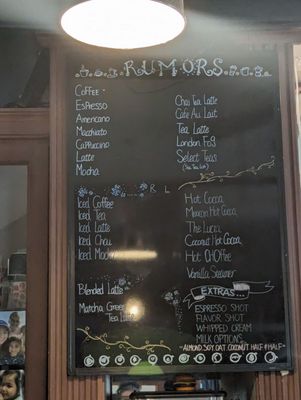 RUMORS
Coffee
Espresso
Americano
Macchiato
Cappuccino
Latte
Mocha
Chai Tea Latte
Cafe Au Lait
Tea Latte
London Fog
Select Teas
R L
Iced Coffee
Iced Tea
Iced Latte
Iced Chai
Iced Mocha
Blended Latte
Matcha Green
Tea Latte
Hot Cocoa
Mexican Hot Cocoa
The Lucy
Coconut Hot Cocoa
Hot
Vanilla Steamer
EXTRAS
ESPRESSO SHOT
FLAVOR SHOT
WHIPPED CREAM
MILK OPTIONS
ALMOND SOY OAT COCONUT HALF & HALF